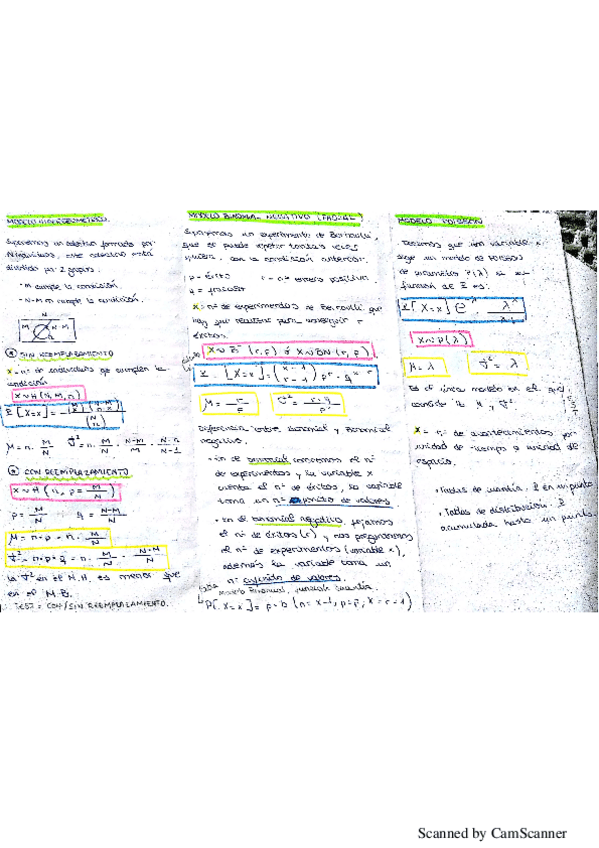 MODELO HIPERGEOMÉTRICO
Suponemos un colectivo formado por
N individuos, este colectivo está
dividido por 2 grupos.
· M cumple la condición.
· N-M no cumple la condición.
N
M N-M
SIN REEMPLAZAMIENTO
x = nº de individuos que cumplen la
condición
X~H(N, M, n)
μ = n · M/N σ² = n · M/N · N-M/N · N-n/N-1
CON REEMPLAZAMIENTO
X~H (n, p = M/N)
p = M/N q = N-M/N
μ = n · p = n · M/N
σ² = n · p · q = n · M/N · N-M/N
la σ² en el M.H. es menor que
en el M.B.
TEST = CON/SIN REEMPLAZAMIENTO.
MODELO BINOMIAL NEGATIVO
Suponemos un experimento de Bernoulli,
que se puede repetir tantas veces
con la condición anterior.
p = éxito r = nº entero positivo
q = fracaso
x = nº de experimentos de Bernoulli que
hay que realizar para conseguir r
éxitos.
[X=x] = (x-1 / r-1) p^r · q
μ = r/p σ² = r·q/p²
Diferencia entre binomial y binomial
negativo.
· En el binomial conocemos el nº
de experimentos y la variable x
cuenta el nº de éxitos, la variable
toma un nº finito de valores
· En el binomial negativo, fijamos
el nº de éxitos (r) y nos preguntamos
el nº de experimentos (variable x),
además la variable toma un
nº infinito de valores.
modelo Binomial, variable
P[X=x] = p · b (n = x-1, p = p, x = r-1)
MODELO POISSON
Decimos que una variable x
sigue un modelo de POISSON
de parámetro P(λ) si su
función de P es:
P[X=x]
X~P(λ)
μ = λ σ² = λ
Es el único modelo en el que
coincide la μ y σ².
x = nº de acontecimientos por
unidad de tiempo o unidad de
espacio.
· Tablas de cuantía: P en un punto
· Tablas de distribución: P
acumulada hasta un punto.
Scanned by CamScanner